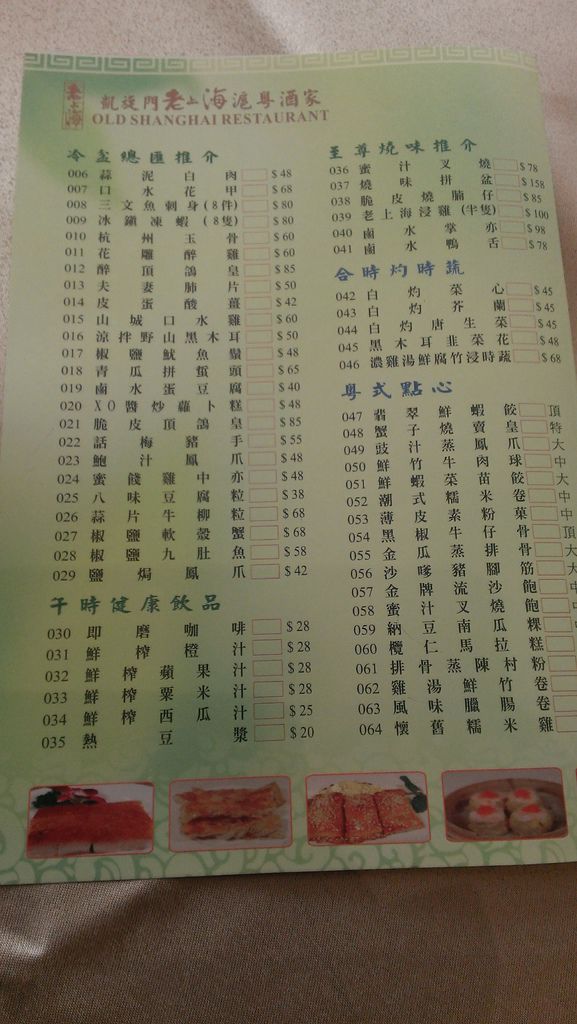 老上海
凱旋門老上海滬粵酒家
OLD SHANGHAI RESTAURANT
冷盆總匯推介
006 蒜泥白肉 $48
007 口水花甲 $68
008 三文魚刺身(8件) $80
009 冰鎮凍蝦(8隻) $80
010 杭州玉骨 $60
011 花雕醉雞 $60
012 醉頂鴿皇 $85
013 夫妻肺片 $50
014 皮蛋酸薑 $42
015 山城口水雞 $60
016 涼拌野山黑木耳 $50
017 椒鹽魷魚鬚 $48
018 青瓜拼蜇頭 $65
019 鹵水蛋豆腐 $40
020 XO醬炒蘿卜糕 $48
021 脆皮頂鴿皇 $85
022 話梅豬手 $55
023 鮑汁鳳爪 $48
024 蜜餞雞中亦 $48
025 八味豆腐粒 $38
026 蒜片牛柳粒 $68
027 椒鹽軟殼蟹 $68
028 椒鹽九肚魚 $58
029 鹽焗鳳爪 $42
午時健康飲品
030 即磨咖啡 $28
031 鮮榨橙汁 $28
032 鮮榨蘋果汁 $28
033 鮮榨粟米汁 $28
034 鮮榨西瓜汁 $25
035 熱豆漿 $20
至尊燒味推介
036 蜜汁叉燒 $78
037 燒味拼盆 $158
038 脆皮燒腩仔 $85
039 老上海浸雞(半隻) $100
040 鹵水掌亦 $98
041 鹵水鴨舌 $78
合時灼時蔬
042 白灼菜心 $45
043 白灼芥蘭 $45
044 白灼唐生菜 $45
045 黑木耳韮菜花 $48
046 濃雞湯鮮腐竹浸時蔬 $68
粵式點心
047 翡翠鮮蝦餃 頂
048 蟹子燒賣皇 特
049 豉汁蒸鳳爪 大
050 鮮竹牛肉球 中
051 鮮蝦菜苗餃 大
052 潮式糯米卷 中
053 薄皮素粉菓 中
054 黑椒牛仔骨 頂
055 金瓜蒸排骨 大
056 沙嗲豬腳筋 大
057 金牌流沙飽 中
058 蜜汁叉燒飽 中
059 納豆南瓜粿 中
060 欖仁馬拉糕 中
061 排骨蒸陳村粉
062 雞湯鮮竹卷
063 風味臘腸卷
064 懷舊糯米雞